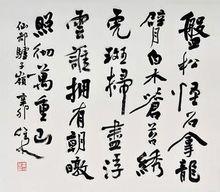 盤松怪石拿龍
臂白木蒼苔綉
虎斑掃盡浮
雲誰擁有朝暾
照徹萬重山